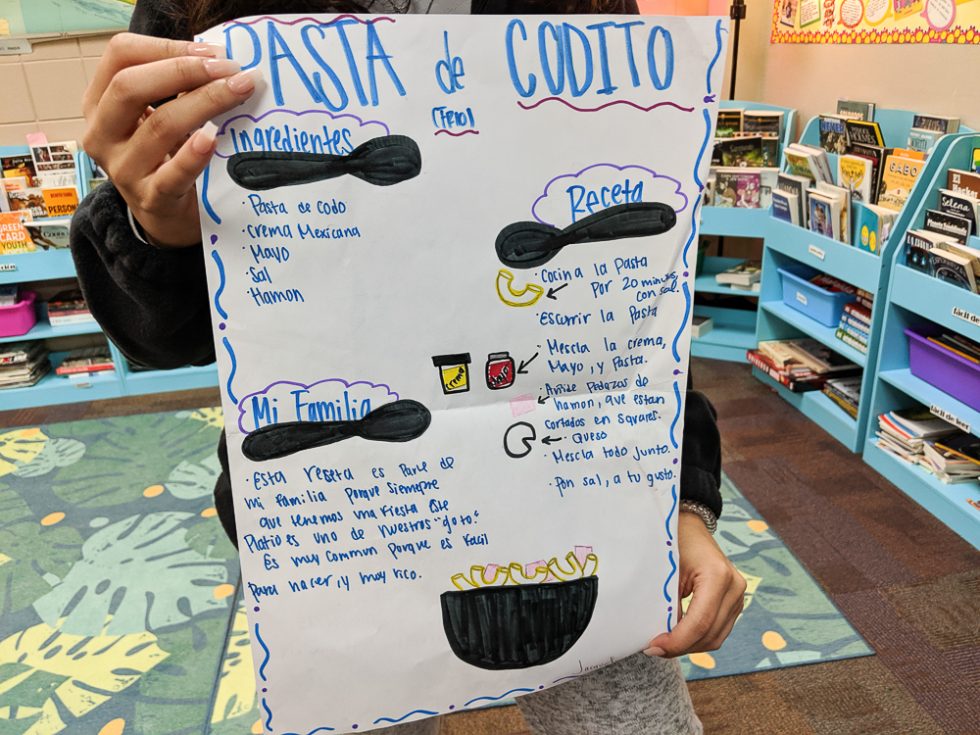 PASTA de CODITO
(Frio)
Ingredientes
· Pasta de codo
· Crema Mexicana
· Mayo
· Sal
· Hamon
Receta
· Cocina la Pasta
por 20 minutos,
con sal.
· Escurrir la Pasta
· Mescla la crema,
Mayo, y Pasta.
· Añide Pedazos de
hamon, que estan
cortados en squares.
· Queso
· Mescla todo junto.
· Pon sal, a tu gusto.
crema
Mayo
Mi Familia
· Esta reseta es Parte de
mi familia Porque siempre
que tenemos una fiesta este
Platio es uno de nuestros "go to."
Es muy common porque es facil
Para hacer, y muy rico.
GREEN
CARD
YOUTH
PERSON
GABO
Selena